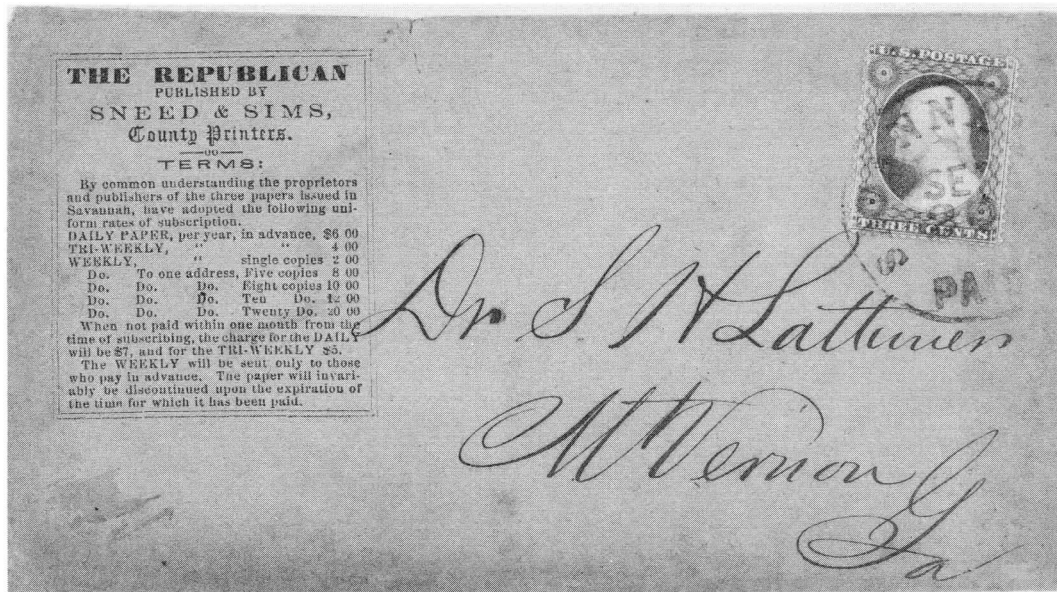 THE REPUBLICAN
PUBLISHED BY
SNEED & SIMS,
County Printers.
TERMS:
By common understanding the proprietors
and publishers of the three papers issued in
Savannah, have adopted the following uni-
form rates of subscription.
DAILY PAPER, per year, in advance, $6 00
TRI-WEEKLY, " " 4 00
WEEKLY, " single copies 2 00
Do. To one address, Five copies 8 00
Do. Do. Do. Eight copies 10 00
Do. Do. Do. Ten Do. 12 00
Do. Do. Do. Twenty Do. 20 00
When not paid within one month from the
time of subscribing, the charge for the DAILY
will be $7, and for the TRI-WEEKLY $5.
The WEEKLY will be sent only to those
who pay in advance. The paper will invari-
ably be discontinued upon the expiration of
the time for which it has been paid.
U.S. POSTAGE
THREE CENTS
PAI
Dr S H Lattimer
Mt Vernon
Ga